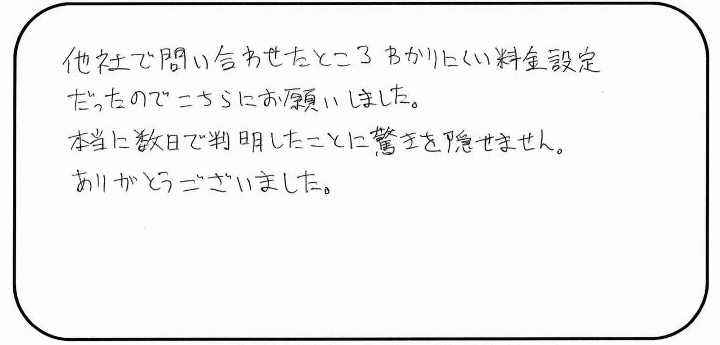 他社で問い合わせたところわかりにくい料金設定
だったのでこちらにお願いしました。
本当に数日で判明したことに驚きを隠せません。
ありがとうございました。